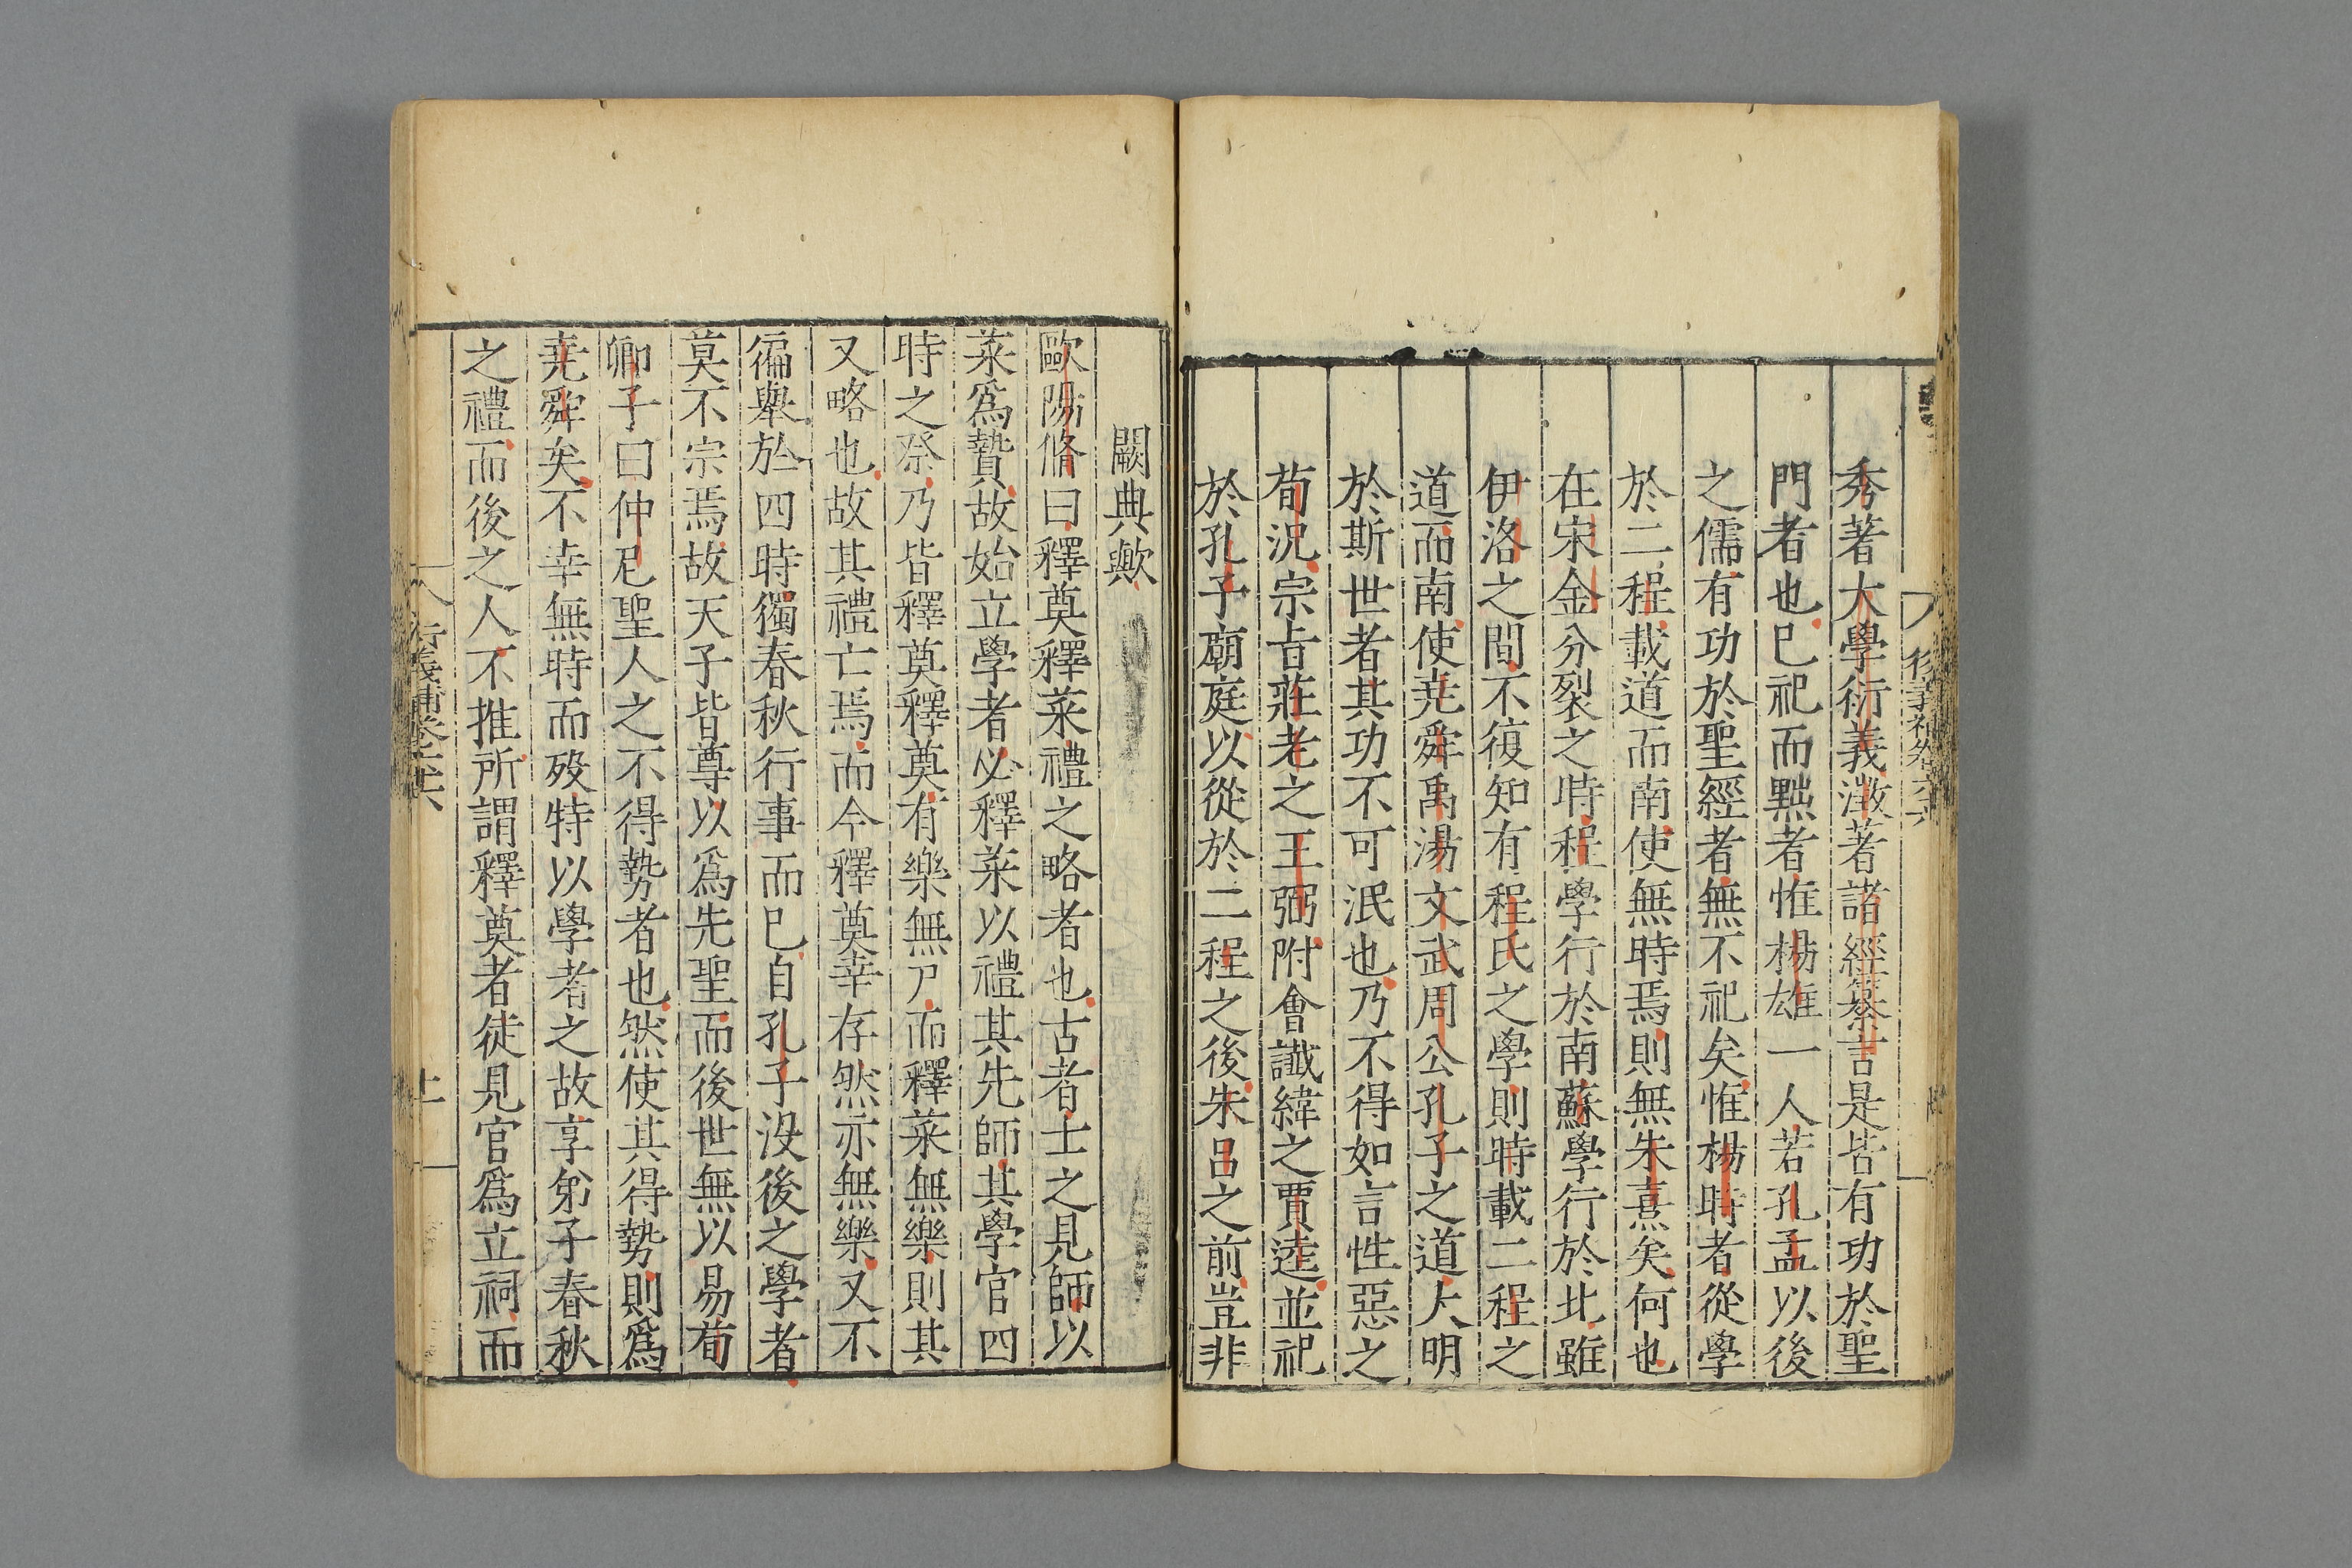 秀著大學衍義澂著諸經纂言是皆有功於聖
門者也已祀而黜者惟楊雄一人若孔孟以後
之儒有功於聖經者無不祀矣惟楊時者從學
於二程載道而南使無時焉則無朱熹矣何也
在宋金分裂之時程學行於南蘇學行於北雖
伊洛之間不復知有程氏之學則時載二程之
道而南使堯舜禹湯文武周公孔子之道大明
於斯世者其功不可泯也乃不得如言性惡之
荀況宗㫖莊老之王弼附會讖緯之賈逵並祀
於孔子廟庭以從於二程之後朱呂之前豈非
闕典歟
歐陽脩曰釋奠釋菜禮之略者也古者士之見師以
菜爲贄故始立學者必釋菜以禮其先師其學官四
時之祭乃皆釋奠釋奠有樂無尸而釋菜無樂則其
又略也故其禮亡焉而今釋奠幸存然亦無樂又不
徧舉於四時獨春秋行事而已自孔子没後之學者
莫不宗焉故天子皆尊以爲先聖而後世無以易荀
卿子曰仲尼聖人之不得勢者也然使其得勢則爲
堯舜矣不幸無時而殁特以學者之故享弟子春秋
之禮而後之人不推所謂釋奠者徒見官爲立祠而